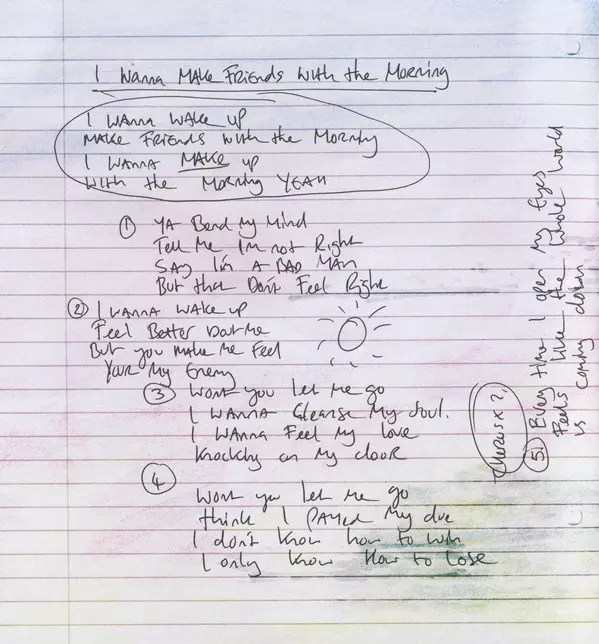 I Wanna Make Friends With the Morning
I WANNA WAKE up
MAKE FRIENDS with the Morning
I WANNA MAKE up
With the Morning YEAH
① YA Bend My Mind
Tell Me I'm not Right
SAY I'm A BAD MAN
But that Don't Feel Right
② I WANNA WAKE up
Feel Better bout me
But you make me Feel
Your My Enemy
③ Wont you let me go
I WANNA Cleanse My Soul.
I WANNA Feel my love
Knocking on My dooR
④
Wont you let me go
think I PAYED My due
I don't Know how to win
I only know How to lose
Chorus x ?
⑤ Every time I open my Eyes
Feels like the Whole World
is coming down